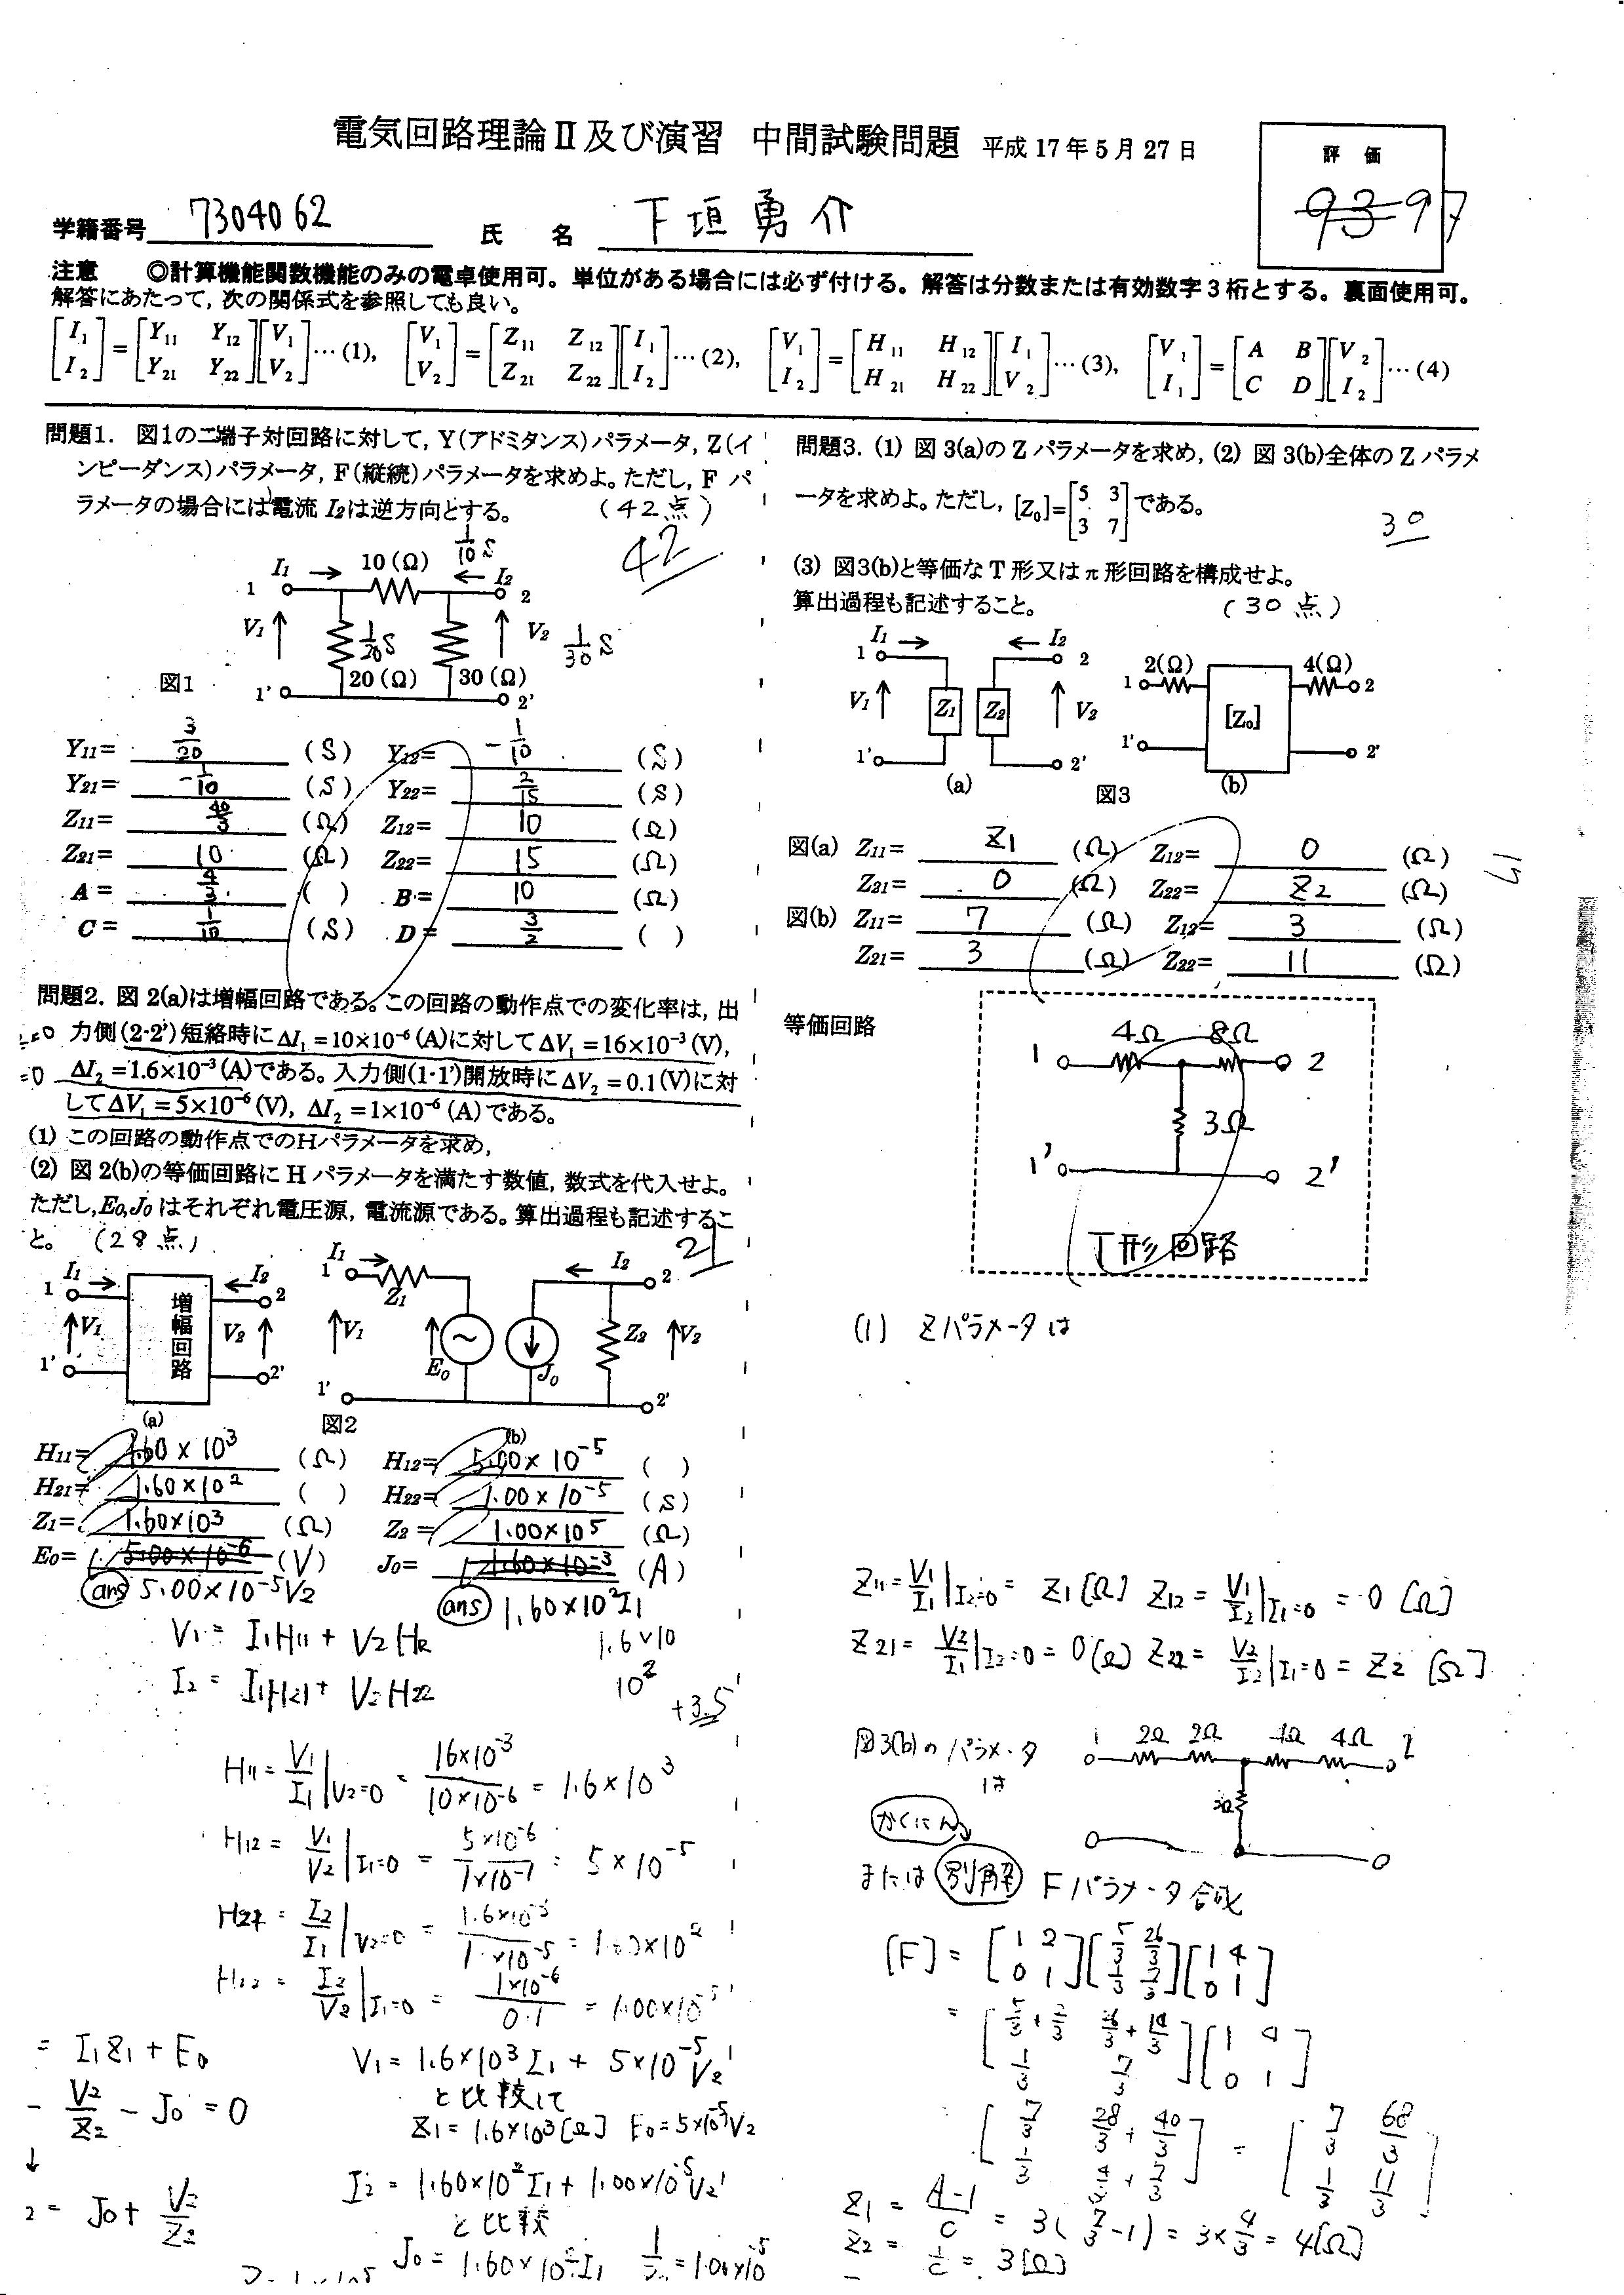 電気回路理論Ⅱ及び演習 中間試験問題 平成17年5月27日
評 価
93 97
学籍番号 7304062 氏 名 下垣勇介
注意 ◎計算機能関数機能のみの電卓使用可。単位がある場合には必ず付ける。解答は分数または有効数字3桁とする。裏面使用可。
解答にあたって,次の関係式を参照しても良い。
[I1 I2] = [Y11 Y12 Y21 Y22][V1 V2]…(1), [V1 V2] = [Z11 Z12 Z21 Z22][I1 I2]…(2), [V1 I2] = [H11 H12 H21 H22][I1 V2]…(3), [V1 I1] = [A B C D][V2 I2]…(4)
問題1. 図1の二端子対回路に対して,Y(アドミタンス)パラメータ,Z(イ
ンピーダンス)パラメータ,F(縦続)パラメータを求めよ。ただし,F パ
ラメータの場合には電流 I2は逆方向とする。 (42点)
42
I1 10(Ω) 1/10 S I2
1 2
V1 1/20 S V2 1/30 S
図1 20(Ω) 30(Ω)
1' 2'
Y11= 3/20 (S) Y12= -1/10 (S)
Y21= -1/10 (S) Y22= 2/15 (S)
Z11= 40/3 (Ω) Z12= 10 (Ω)
Z21= 10 (Ω) Z22= 15 (Ω)
A = 4/3 ( ) B= 10 (Ω)
C = 1/10 (S) D= 3/2 ( )
問題2. 図2(a)は増幅回路である。この回路の動作点での変化率は,出
=0 力側(2-2')短絡時にΔI1=10×10-6(A)に対してΔV1=16×10-3(V),
=0 ΔI2=1.6×10-3(A)である。入力側(1-1')開放時にΔV2=0.1(V)に対
してΔV1=5×10-6(V), ΔI2=1×10-6(A)である。
(1) この回路の動作点でのHパラメータを求め,
(2) 図2(b)の等価回路に H パラメータを満たす数値,数式を代入せよ。
ただし,E0,J0はそれぞれ電圧源,電流源である。算出過程も記述するこ
と。 (28点)
21
I1 I2 I1 I2
1 2 1 2
Z1
V1 増幅回路 V2 V1 E0 J0 Z2 V2
1' 2' 1' 2'
(a) 図2 (b)
H11= 1.60×10^3 (Ω) H12= 5.00×10^-5 ( )
H21= 1.60×10^2 ( ) H22= 1.00×10^-5 (S)
Z1= 1.60×10^3 (Ω) Z2= 1.00×10^5 (Ω)
E0= 5.00×10^-6 (V) J0= 1.60×10^-3 (A)
ans 5.00×10^-5V2 ans 1.60×10^2I1
V1= I1H11+ V2H12
I2= I1H21+ V2H22
1.6×10
10^2
+3.5
H11= V1/I1|V2=0 = 16×10^-3/10×10^-6 = 1.6×10^3
H12= V1/V2|I1=0 = 5×10^-6/1×10^-1 = 5×10^-5
H21= I2/I1|V2=0 = 1.6×10^-3/1×10^-5 = 1.60×10^2
H22= I2/V2|I1=0 = 1×10^-6/0.1 = 1.00×10^-5
= I1Z1+E0
- V2/Z2 - J0 =0
↓
2= J0+ V2/Z2
V1= 1.6×10^3 I1+ 5×10^-5 V2
と比較して
Z1= 1.6×10^3[Ω] E0=5×10^-5V2
I2= 1.60×10^2I1+ 1.00×10^-5V2
と比較
J0= 1.60×10^2I1 1/Z2=1.00×10^-5
問題3. (1) 図3(a)の Z パラメータを求め,(2) 図3(b)全体の Z パラメ
ータを求めよ。ただし,[Z0]=[5 3 3 7]である。
30
(3) 図3(b)と等価なT形又はπ形回路を構成せよ。
算出過程も記述すること。 (30点)
I1 I2
1 2 2(Ω) 4(Ω)
1 2
V1 Z1 Z2 V2 [Z0]
1' 2' 1' 2'
(a) 図3 (b)
図(a) Z11= Z1 (Ω) Z12= 0 (Ω)
Z21= 0 (Ω) Z22= Z2 (Ω)
図(b) Z11= 7 (Ω) Z12= 3 (Ω)
Z21= 3 (Ω) Z22= 11 (Ω)
等価回路
4Ω 8Ω
1 2
3Ω
1' 2'
T形回路
(1) Zパラメータは
Z11= V1/I1|I2=0 = Z1[Ω] Z12= V1/I2|I1=0 = 0 [Ω]
Z21= V2/I1|I2=0 = 0[Ω] Z22= V2/I2|I1=0 = Z2 [Ω]
図3(b)のパラメータ
は
1 2Ω 2Ω 4Ω 4Ω 2
3Ω
かくにん
または 別解 Fパラメータ合成
[F] = [1 2 0 1][5/3 26/3 1/3 7/3][1 4 0 1]
= [5/3+2/3 26/3+14/3 1/3 7/3][1 4 0 1]
= [7/3 28/3+40/3 1/3 4/3+7/3] = [7/3 68/3 1/3 11/3]
Z1= A-1/C = 3(7/3-1) = 3×4/3 = 4[Ω]
Z2= 1/C = 3[Ω]